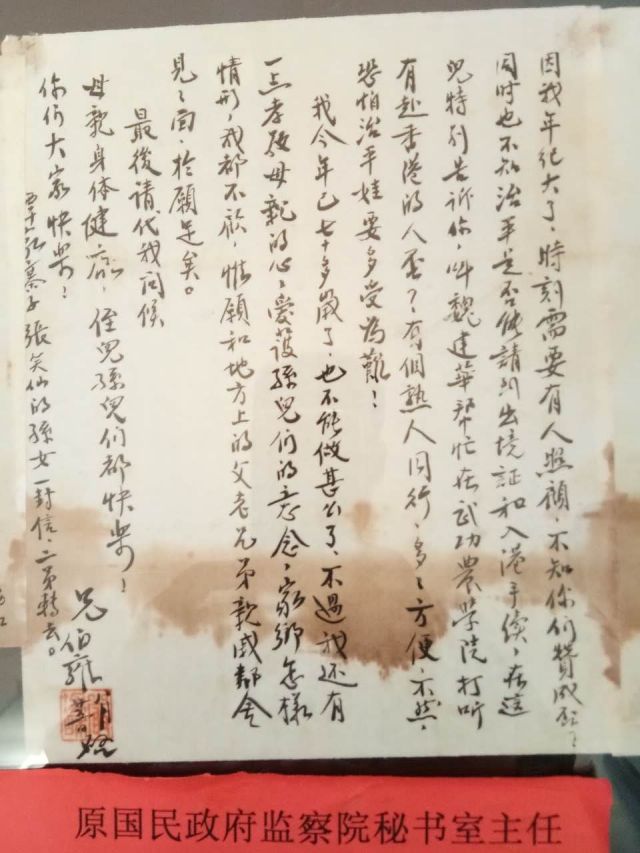 因我年纪大了，時刻需要有人照顧，不知你们贊成否？
同时也不知治平是否能請到出境証和入港手续，在這
兒特别告訴你，叫魏建華帮忙在武功農学院打听
有赴香港的人否？有個熟人同行，多々方便，不然，
恐怕治平娃要多受為難！
我今年已七十多歲了，也不能做甚么了，不過我还有
一点孝敬母親的心，愛護孫兒们的意念，家鄉怎樣
情形，我都不欲，惟願和地方上的父老兄弟親戚都会
見々面，於願足矣。
最後請代我问候
母親身体健康，侄兒孫兒们都快乐！
你们大家快樂！
兄伯雍
張笑仙的孫女一封信，二弟轉去。
原国民政府监察院秘书室主任